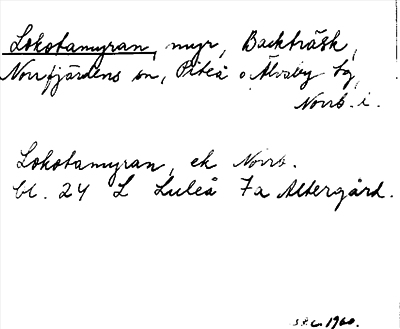 Lokotamyran, myr, Backträsk,
Norrfjärdens sn, Piteå o Älvsby tg,
Norrb. i.
Lokotamyran, ek Norrb.
bl. 24 L Luleå 7a Altergård.
1960.